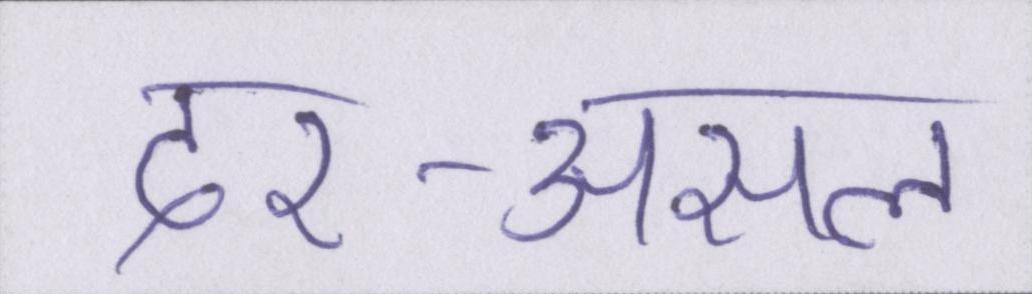 दर-असल